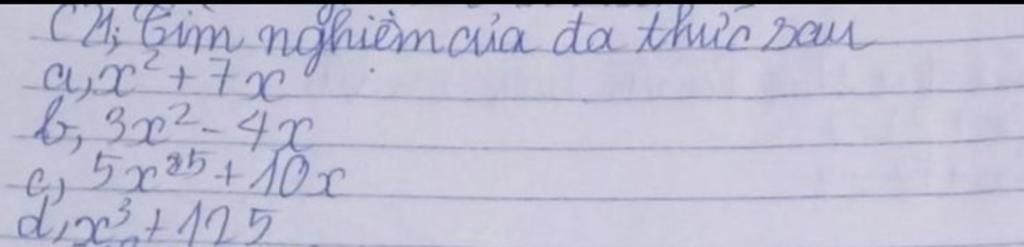 C1; Tìm nghiệm của đa thức sau
a, x² + 7x
b, 3x² - 4x
c, 5x²⁵ + 10x
d, x³ + 125